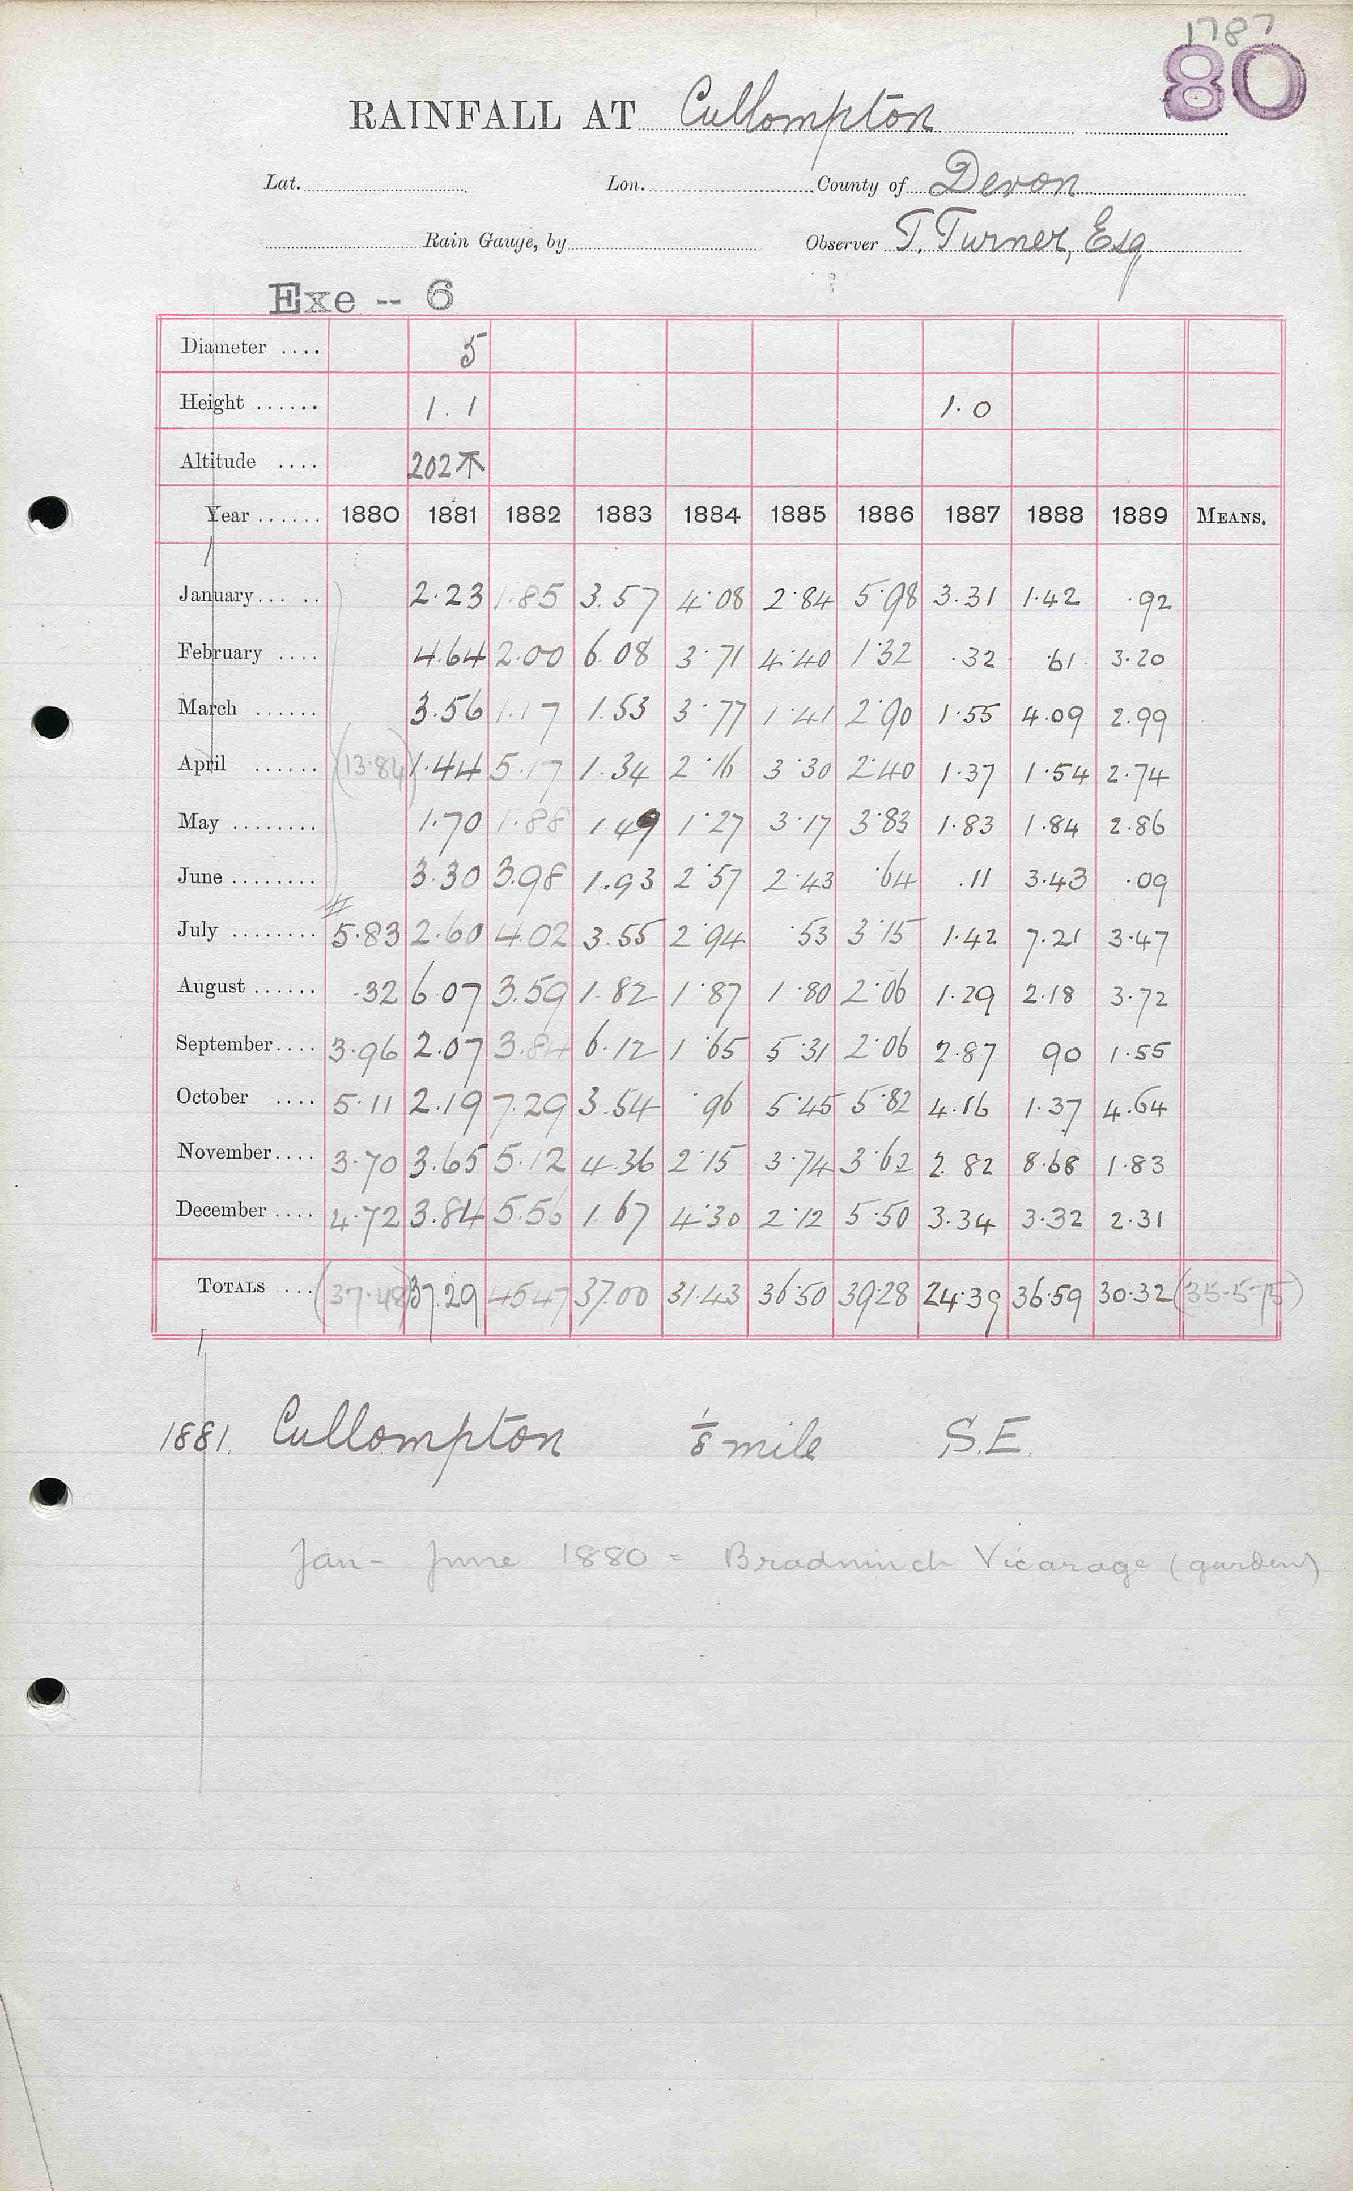 1787
80
RAINFALL AT Cullompton
Lat. Lon. County of Devon
Rain Gauge, by Observer T. Turner, Esq
Exe -- 6
Diameter .... 5
Height ...... 1.1 1.0
Altitude .... 202
Year ...... 1880 1881 1882 1883 1884 1885 1886 1887 1888 1889 MEANS.
January... .. 2.23 1.85 3.57 4.08 2.84 5.98 3.31 1.42 .92
February .... 4.64 2.00 6.08 3.71 4.40 1.32 .32 .61 3.20
March ...... 3.56 1.17 1.53 3.77 1.41 2.90 1.55 4.09 2.99
April ...... (13.84) 1.44 5.17 1.34 2.16 3.30 2.40 1.37 1.54 2.74
May ........ 1.70 1.88 1.49 1.27 3.17 3.83 1.83 1.84 2.86
June ........ 3.30 3.98 1.93 2.57 2.43 .64 .11 3.43 .09
July ........ 5.83 2.60 4.02 3.55 2.94 .53 3.15 1.42 7.21 3.47
August ...... .32 6.07 3.59 1.82 1.87 1.80 2.06 1.29 2.18 3.72
September.... 3.96 2.07 3.84 6.12 1.65 5.31 2.06 2.87 90 1.55
October .... 5.11 2.19 7.29 3.54 .96 5.45 5.82 4.16 1.37 4.64
November.... 3.70 3.65 5.12 4.36 2.15 3.74 3.62 2.82 8.68 1.83
December .... 4.72 3.84 5.56 1.67 4.30 2.12 5.50 3.34 3.32 2.31
TOTALS .... (37.48) 37.29 45.47 37.00 31.43 36.50 39.28 24.39 36.59 30.32 (35.575)
1881. Cullompton 1/8 mile S.E.
Jan - June 1880 = Bradninch Vicarage (garden)